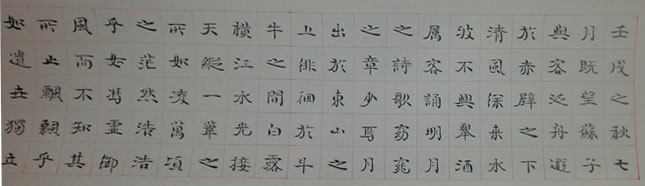 壬戌之秋七
月既望蘇子
與客泛舟遊
於赤壁之下
清風徐來水
波不興舉酒
属客誦明月
之詩歌窈窕
之章少焉月
出於東山之
上徘徊於斗
牛之間白露
橫江水光接
天縱一葦之
所如凌萬頃
之茫然浩浩
乎如馮虛御
風而不知其
所止飄飄乎
如遺世獨立